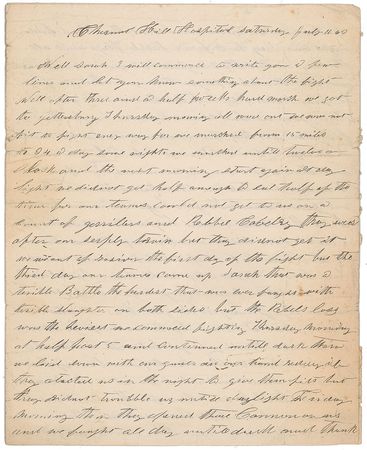 Chesnut Hill Hospital Saturday July 11 63
Well Sarah I will commence to write you a few
lines and let you know something about the fight
Well after three and a half weeks hard march we got
to gettersburg Thursday morning all wore out we are not
fit to fight eney way for we marched from 15 miles
to 24 a day some nights we marched untill twelve o
clock and the next morning start again at day
light we did not get half enough to eat half of the
time for our teames could not get to us on a
count of gorrillers and Rebbel Cavelry they was
after our suply train but they did not get it
we went of the first day of the fight but the
third day our teames came up Sarah that was a
terrible Battle the hardest that was ever fought with
terible slaughter on both sides but the Rebels loss
was the heviest we commenced fighting Thursday morning
at half past 5 and continued untill dark then
we laid down with our guns in our hand redey if
they atacted us in the night to give them fits but
they did not trouble us untill daylight Friday
morning then they opened there Cannon on us
and we fought all day untill dark and thank